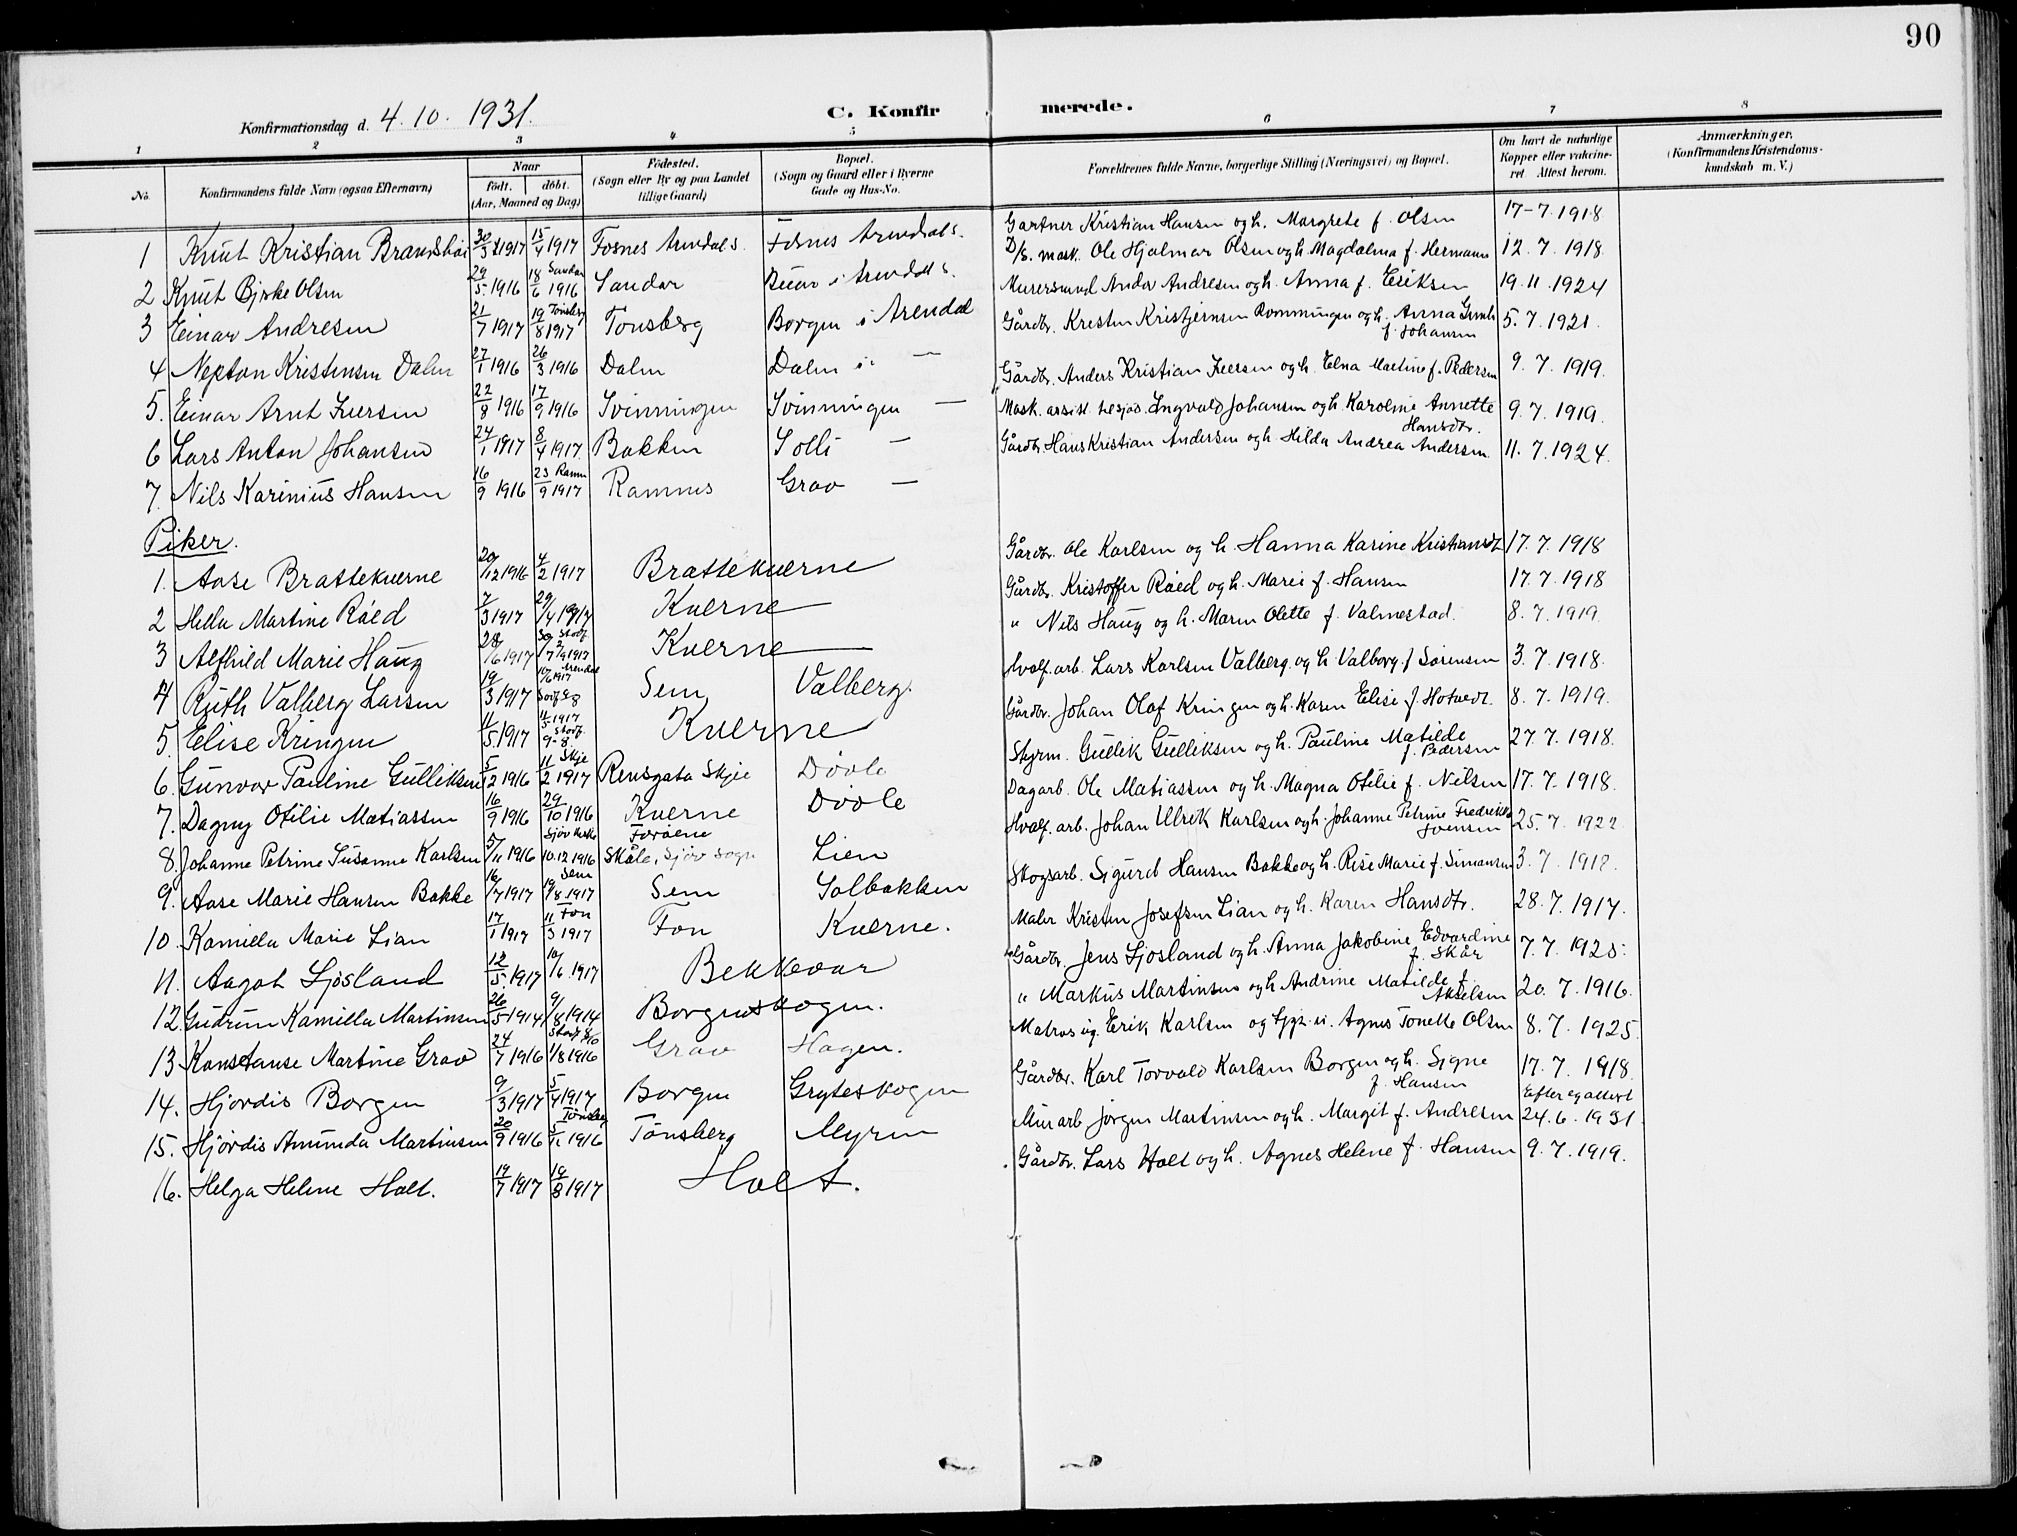 90
Konfirmationsdag d. 4. 10. 1931.
C. Konfirmerede.
1 2 3 4 5 6 7 8
No. Konfirmandens fulde Navn (ogsaa Efternavn) Naar födt. döbt. (Aar, Maaned og Dag) Födested. (Sogn eller By og paa Landet tillige Gaard) Bopæl. (Sogn og Gaard eller i Byerne Gade og Hus-No. Forældrenes fulde Navne, borgerlige Stilling (Næringsvei) og Bopæl. Om havt de naturlige Kopper eller vakcineret. Attest herom. Anmærkninger. (Konfirmandens Kristendomskundskab m. V.)
1 Knut Kristian 30/3 1917 15/4 1917 Fosnes Arendals. Fosnes Arendals. Gartner Kristian Hansen og h. Margrete f. Olsen 17-7 1918
2 Knut Bjerke Olsen 29/5 1916 18/6 1916 Sandar Sandar Buar i Arendals. D/s. mask. Ole Hjalmar Olsen og h. Magdalena f. Hermann 12. 7. 1918.
3 Einar Andresen 21/7 1917 19/8 1917 Tönsberg Tonsberg Borgen i Arendal Murersvend Andor Andresen og h. Anna f. Eriksen 19. 11. 1924
4 Nepton Kristensen Dalen 27/1 1916 26/3 1916 Dalen Dalen i — Gårdbr. Kresten Kristjernsen Rommingen og h. Anna f. Johansen 5. 7. 1921.
5. Einar Arnt Iversen 22/8 1916 17/9 1916 Svinningen Svinningen — Gårdbr. Anders Kristian Iversen og h. Elna Martine f. Pedersen 9. 7. 1919.
6 Lars Anton Johansen 24/1 1917 8/4 1917 Bakken Solli — Mask. assist. Ingvald Johansen og h. Karoline Annette Hansdtr. 9. 7. 1919.
7. Nils Karinius Hansen 16/9 1916 23/9 1917 Ramnes Grav — Gårdbr. Hans Kristian Andersen og h. Hilda Andrea Andersen 11. 7. 1924.
Piker.
1. Aase Brattekverne 20/12 1916 4/2 1917 Brattekverne Gårdbr. Ole Karlsen og h. Hanna Karine Kristiansdt 17. 7. 1918
2 Hella Martine Röed 7/3 1917 29/4 1917 Kverne — Gårdbr. Kristoffer Röed og h. Marie f. Hansen 17. 7. 1918
3 Alfhild Marie Haug 28/6 1917 Kverne — " Nils Haug og h. Maren Olette f. Valmestad. 8. 7. 1919.
4 Ruth Valberg Larsen 19/3 1917 Sem Valberg. Hvalf. arb. Lars Karlsen Valberg og h. Valborg f. Sörensen 3. 7. 1918.
5. Elise Kringen 11/5. 1917 9-8. Kverne Gårdbr. Johan Olaf Kringen og h. Karen Elise f. Hotvedt. 8. 7. 1919.
6. Gunvor Pauline Gulliksen 5/12 1916 11/2 1917 Skje Rensgata Skje Dövle Styrm. Gullik Gulliksen og h. Pauline Matilde f. Pedersen 27. 7. 1918.
7. Dagny Otilie Matiassen 16/9 1916 29/10 1916 Kverne Dövle Dagarb. Ole Matiassen og h. Magna Otilie f. Nilsen 17. 7. 1918.
8. Johanne Petrine Susanne Karlsen 5/11 1916 10. 12 1916 Færöene Skåle, Sjöv sogn Lien Hvalf. arb. Johan Ulrik Karlsen og h. Johanne Petrine Fredrikke Joensen 25. 7. 1922.
9. Aase Marie Hansen Bakke 16/7 1917 19/8 1917 Sem Sem Solbakken Skogsarb. Sigurd Hansen Bakke og h. Rise Marie f. Simonsen 3. 7. 1918.
10. Kamilla Marie Lian 17/1 1917 11/3 1917 Fon Fon Kverne. Maler Kristen Josefsen Lian og h. Karen Hansdtr. 28. 7. 1917.
11. Aagot Sjösland 12/5. 1917 10/6. 1917 Bekkevar Gårdbr. Jens Sjösland og h. Anna Jakobine Edvardine f. Skår 7. 7. 1925.
12. Gudrun Kamilla Martinsen 26/5 1914 9/8 1914 Borgenskogen. " Markus Martinsen og h. Andrine Matilde f. Akselsen 20. 7. 1916.
13. Konstanse Martine Grav 24/7 1916 1/8 1916 Grav Hagen. Matros ug. Erik Karlsen og Agnes Tonette Olsen 8. 7. 1925.
14. Hjordis Borgen 9/3 1917 5/4 1917 Borgen Gryteskogen Gårdbr. Karl Torvald Karlsen Borgen og h. Signe f. Hansen 17. 7. 1918
15. Hjördis Amunda Martinsen 20/9 1916 5/11 1916 Tönsberg Tönsberg Myren Murarb. Jörgen Martinsen og h. Margit f. Andresen Efter eg attest 24. 6. 1931.
16. Helga Helene Holt. 19/7 1917 19/8 1917 Holt. Gårdbr. Lars Holt og h. Agnes Helene f. Hansen 9. 7. 1919.